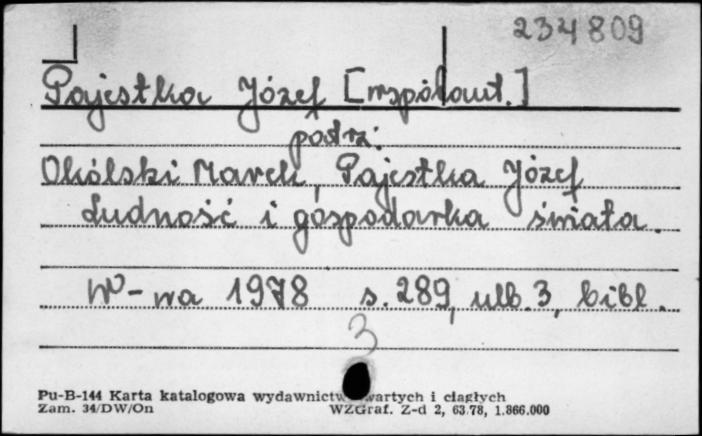 234809
Pajestka Józef [współaut.]
podrz:
Okólski Marek, Pajestka Józef
Ludność i gospodarka świata.
W-wa 1978 s. 289, ulb. 3, bibl.
3
Pu-B-144 Karta katalogowa wydawnictw zwartych i ciągłych
Zam. 34/DW/On WZGraf. Z-d 2, 63.78, 1.866.000